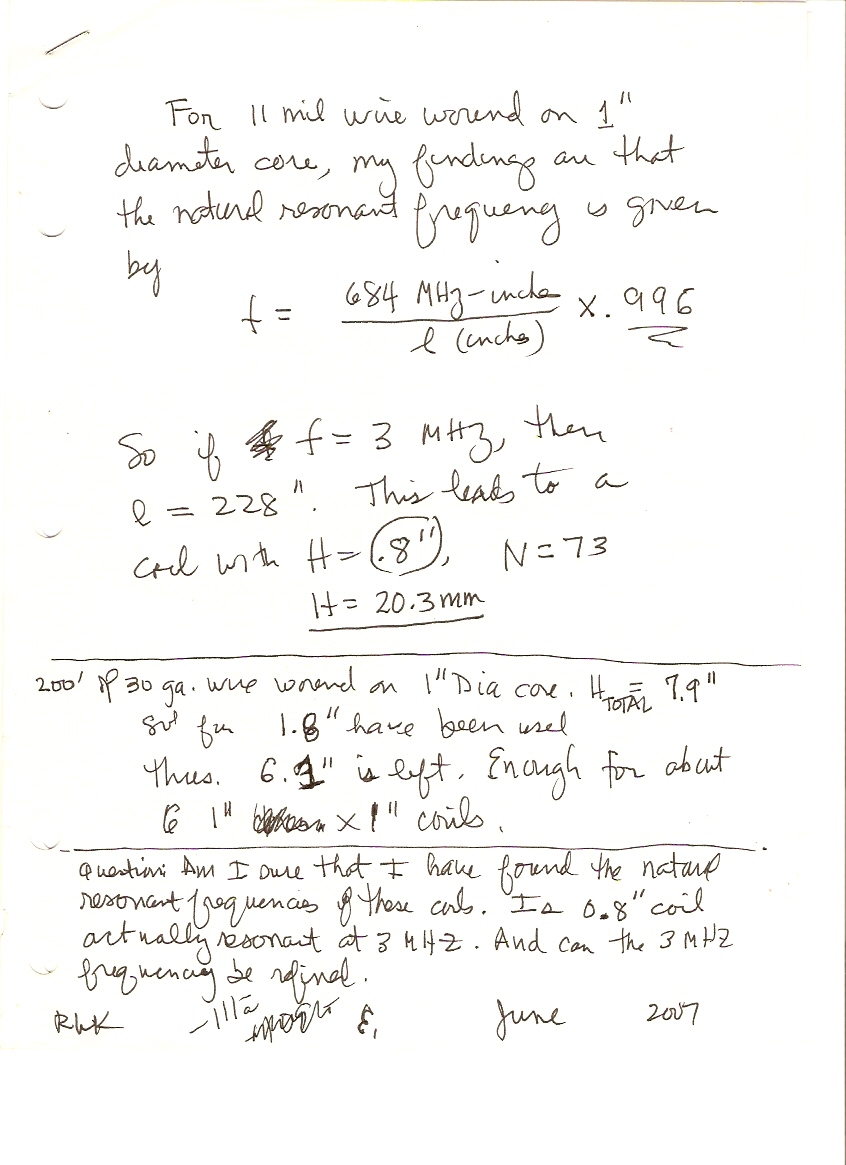 For 11 mil wire wound on 1"
diameter core, my findings are that
the natural resonant frequency is given
by
f = 684 MHz-inches / l (inches) x .996
So if f = 3 MHz, then
l = 228". This leads to a
coil with H = .8", N = 73
H = 20.3 mm
200' of 30 ga. wire wound on 1" Dia core. H TOTAL = 7.9"
So far 1.8" have been used
Thus. 6.1" is left. Enough for about
6 1" x 1" coils.
Question: Am I sure that I have found the natural
resonant frequencies of these coils. Is 0.8" coil
actually resonant at 3 MHZ. And can the 3 MHZ
frequency be refined.
RWK June 2007